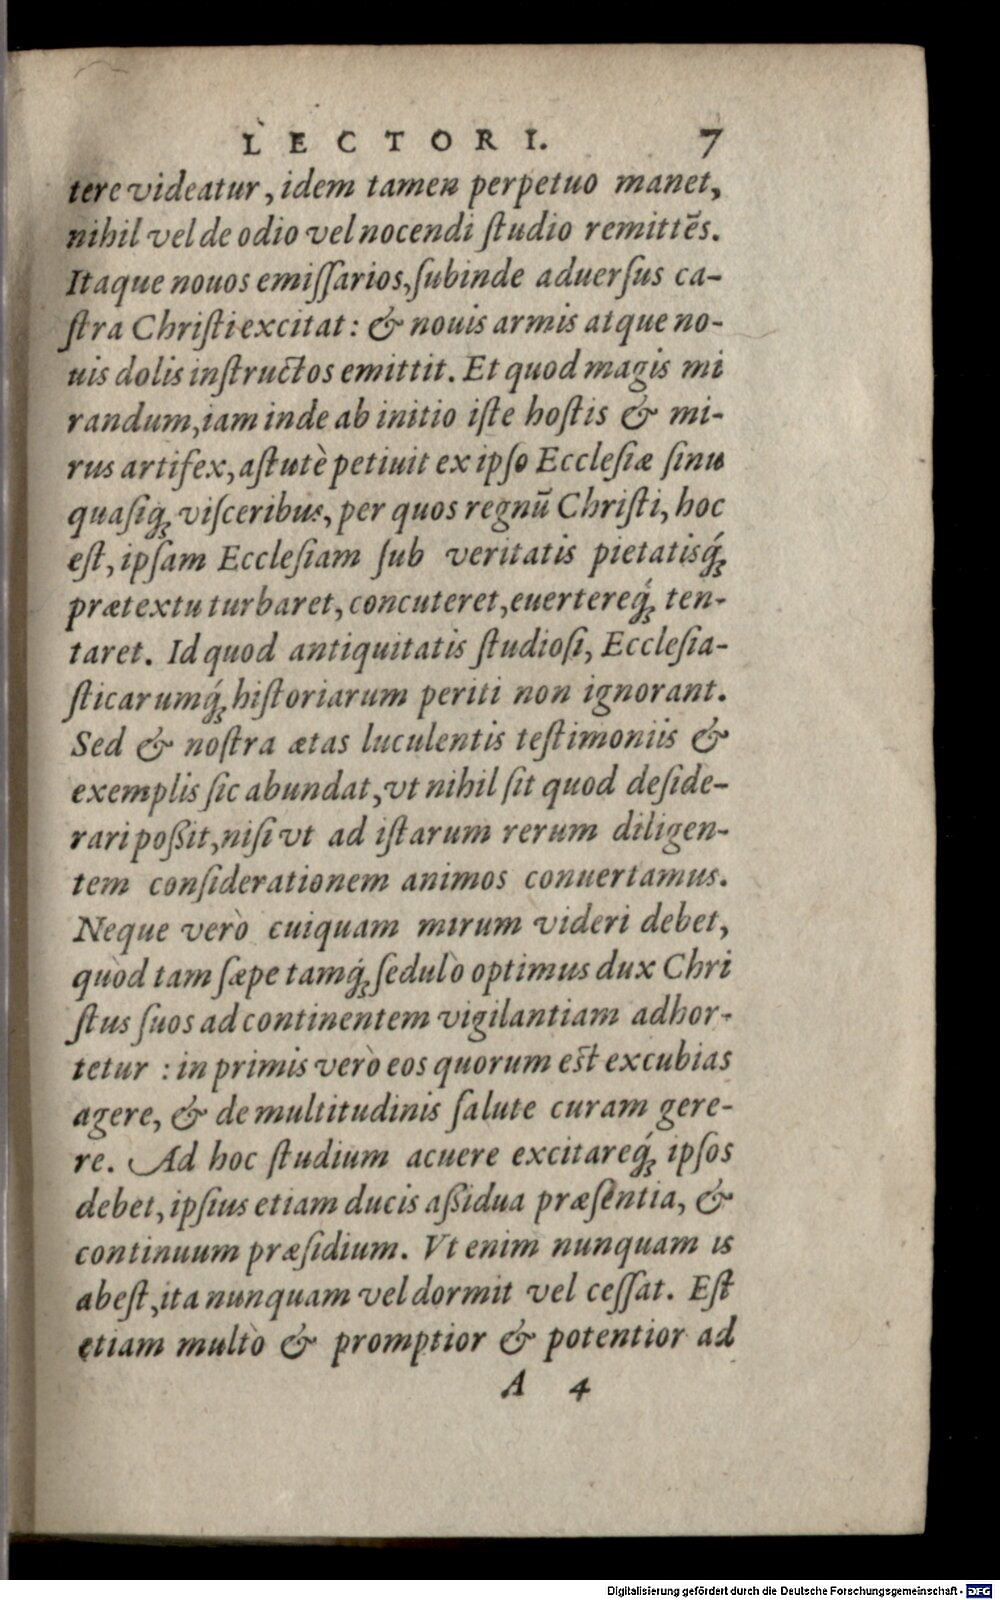 LECTORI. 7
tere videatur, idem tamen perpetuo manet,
nihil vel de odio vel nocendi ſtudio remittēs.
Itaque nouos emiſſarios, ſubinde aduerſus ca-
ſtra Chriſti excitat: & nouis armis atque no-
uis dolis inſtructos emittit. Et quod magis mi
randum, iam inde ab initio iſte hoſtis & mi-
rus artifex, aſtutè petiuit ex ipſo Eccleſiæ ſinu
quaſiq́; viſceribus, per quos regnū Chriſti, hoc
eſt, ipſam Eccleſiam ſub veritatis pietatisq́;
prætextu turbaret, concuteret, euertereq́; ten-
taret. Id quod antiquitatis ſtudioſi, Eccleſia-
ſticarumq́; hiſtoriarum periti non ignorant.
Sed & noſtra ætas luculentis teſtimoniis &
exemplis ſic abundat, vt nihil ſit quod deſide-
rari poßit, niſi vt ad iſtarum rerum diligen-
tem conſiderationem animos conuertamus.
Neque verò cuiquam mirum videri debet,
quòd tam ſæpe tamq́; ſedulò optimus dux Chri
ſtus ſuos ad continentem vigilantiam adhor-
tetur : in primis verò eos quorum eſt excubias
agere, & de multitudinis ſalute curam gere-
re. Ad hoc ſtudium acuere excitareq́; ipſos
debet, ipſius etiam ducis aßidua præſentia, &
continuum præſidium. Vt enim nunquam is
abeſt, ita nunquam vel dormit vel ceſſat. Eſt
etiam multò & promptior & potentior ad
A 4
Digitalisierung gefördert durch die Deutsche Forschungsgemeinschaft - DFG